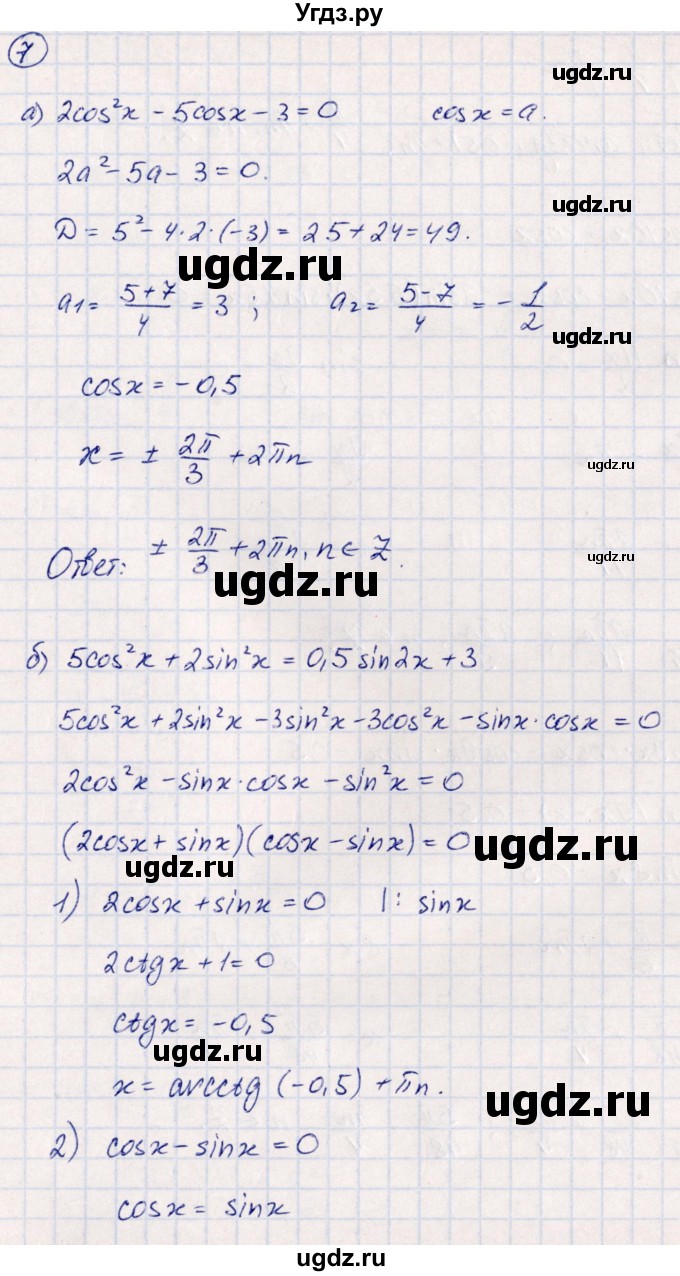 Угдз.ру
7
ugdz.ru
а) 2cos²x - 5cosx - 3 = 0 cosx = a.
2a² - 5a - 3 = 0.
ugdz.ru
D = 5² - 4·2·(-3) = 25 + 24 = 49.
ugdz.ru
a₁ = (5+7)/4 = 3 ; a₂ = (5-7)/4 = - 1/2
ugdz.ru
cosx = -0,5
x = ± 2π/3 + 2πn
ugdz.ru
Ответ: ± 2π/3 + 2πn, n ∈ Z.
ugdz.ru
ugdz.ru
б) 5cos²x + 2sin²x = 0,5 sin2x + 3
5cos²x + 2sin²x - 3sin²x - 3cos²x - sinx·cosx = 0
2cos²x - sinx·cosx - sin²x = 0
(2cosx + sinx)(cosx - sinx) = 0
ugdz.ru
ugdz.ru
1) 2cosx + sinx = 0 |: sinx
2ctgx + 1 = 0
ctgx = -0,5
ugdz.ru
x = arcctg (-0,5) + πn.
ugdz.ru
2) cosx - sinx = 0
cosx = sinx
ugdz.ru